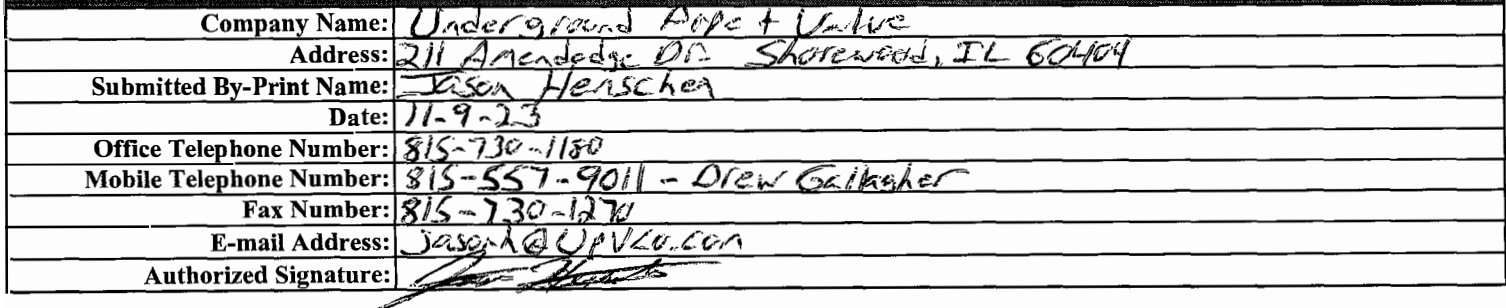 Company Name: Underground Pipe + Valve
Address: 211 Amendodge Dr. Shorewood, IL 60404
Submitted By-Print Name: Jason Henschen
Date: 11-9-23
Office Telephone Number: 815-730-1180
Mobile Telephone Number: 815-557-9011 - Drew Gallagher
Fax Number: 815-730-1270
E-mail Address: Jasonh@UPVCo.com
Authorized Signature: